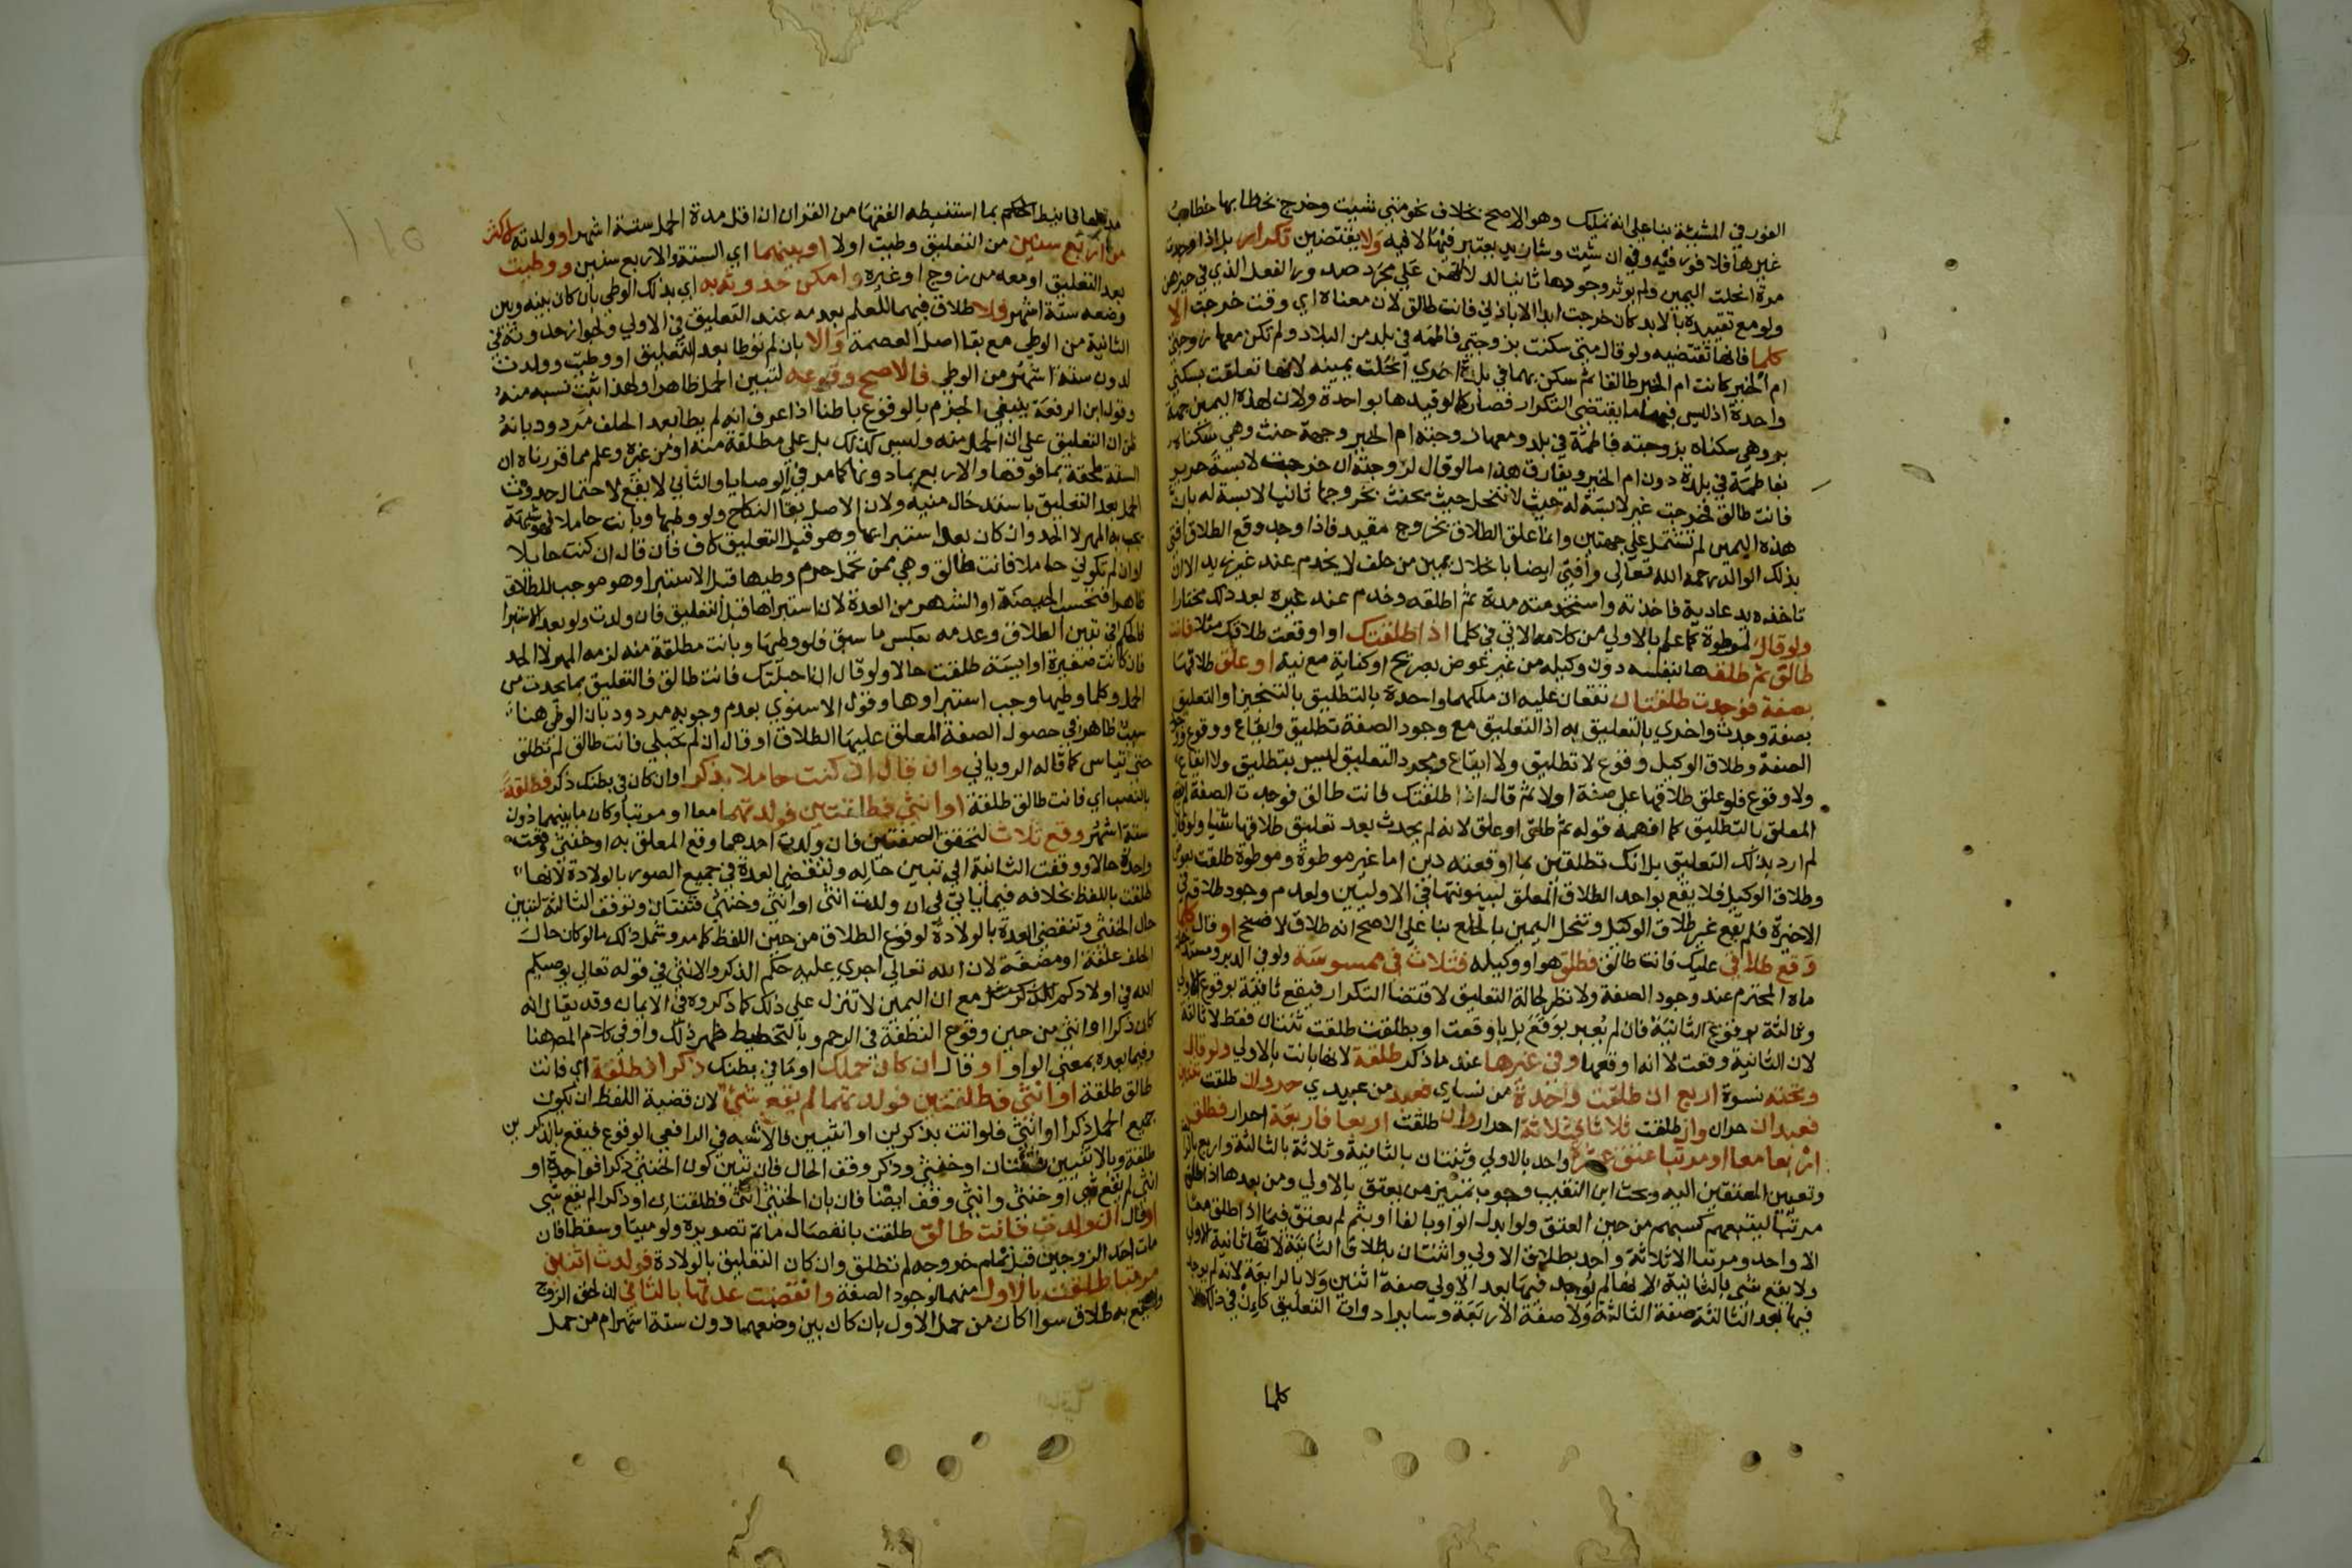 الفور في المشيئة بنا على انه تمليك وهو الاصح بخلاف نحو متى شيت وخرج بخطابها خطاب
غيرها فلا فور فيه وفي ان شيت وشا زيد يعتبر فيها لا فيه ولا يقتضين تكرار بل اذا وجدت
مرة انحلت اليمين ولم يوثر وجودها ثانيا لدلالتهن على مجرد صدور الفعل الذي في حيزهن
ولو مع تقييده بالابد كان خرجت ابدا الا باذني فانت طالق لان معناه اي وقت خرجت الا
كلما فانها تقتضيه ولو قال متى سكنت بزوجتي فاطمه في بلد من البلاد ولم تكن معها زوجتي
ام الخير كانت ام الخير طالقا ثم سكن بهما في بلدة اخرى انحلت يمينه لانها تعلقت بسكنى
واحدة اذ ليس فيها ما يقتضي التكرار فصار كما لو قيدها بواحدة ولان لهذه اليمين جهة
بر وهي سكناه بزوجته فاطمة في بلد ومعها زوجته ام الخير وجهة حنث وهي سكناه
بفاطمة في بلدة دون ام الخير ويفارق هذا ما لو قال لزوجته ان خرجت لابسة حرير
فانت طالق فخرجت غير لابسة له حيث لا تنحل حيث يحنث بخروجها ثانيا لابسة له بان
هذه اليمين لم تشتمل على جهتين وانما علق الطلاق بخروج مقيد فاذا وجد وقع الطلاق افتى
بذلك الوالد رحمه الله تعالى وافتى ايضا باخلال يمين من حلف لا يخدم عند غير زيد الا ان
تاخذه يد عادية فاخذته واستخدمته مدة ثم اطلقه وخدم عند غيره بعد ذلك مختارا
ولو قال لموطوة كما علم بالاولى من كلامه الاتي في كلما اذا طلقتك او اوقعت طلاقك مثلا فانت
طالق ثم طلقها بنفسه دون وكيله من غير عوض بصريح او كناية مع نية او علق طلاقها
بصفة فوجدت طلقتان تقعان عليه ان ملكهما واحدة بالتطليق بالتنجيز او التعليق
بصفة وجدت واخرى بالتعليق به اذ التعليق مع وجود الصفة تطليق وايقاع ووقوع
الصفة وطلاق الوكيل وقوع لا تطليق ولا ايقاع ومجرد التعليق ليس بتطليق ولا ايقاع
ولا وقوع فلو علق طلاقها على صفة اولا ثم قال اذا طلقتك فانت طالق فوجدت الصفة لم يقع
المعلق بالتطليق كما افهمه قوله ثم طلق او علق لانه لم يحدث بعد تعليق طلاقها شيا ولو قال
لم ارد بذلك التعليق بل انك تطلقين بما اوقعته دين اما غير موطوة وموطوة طلقت بعوض
وطلاق الوكيل فلا يقع بواحد الطلاق المعلق لبينونتها في الاوليين ولعدم وجود طلاقه في
الاخيرة فلم يقع غير طلاق الوكيل وتنحل اليمين بالخلع بنا على الاصح انه طلاق لا فسخ او قال كلما
وقع طلاقي عليك فانت طالق فطلق هو او وكيله فثلاث في ممسوسة ولو في الدبر ومستدخلة
ماه المحترم عند وجود الصفة ولا نظر لحالة التعليق لاقتضا التكرار فيقع ثانية بوقوع الاولى
وثالثة بوقوع الثانية فان لم يعبر بوقع بل باوقعت او بطلقت طلقت ثنتان فقط لا ثالثة
لان الثانية وقعت لا انه اوقعها وفي غيرها عند ما ذكر طلقة لانها بانت بالاولى ولو قال
وتحته نسوة اربع ان طلقت واحدة من نساي فعبد من عبيدي حر وان طلقت ثنتين
فعبدان حران وان طلقت ثلاثا فثلاثة احرار وان طلقت اربعا فاربعة احرار فطلق
اربعا معا او مرتبا عتق عشرة واحد بالاولى وثنتان بالثانية وثلاثة بالثالثة واربع بالرابعة
وتعيين المعتقين اليه وبحث ابن النقيب وجوب تمييز من يعتق بالاولى ومن بعدها اذا طلق
مرتبا ليتبعهم كسبهم من حين العتق ولو ابدل الواو بالفا او بثم لم يعتق فيما اذا طلق معا
الا واحد ومرتبا الا ثلاثة واحد بطلاق الاولى واثنتان بطلاق الثالثة لانها ثانية الاولى
ولا يقع شي بالثانية لانها لم يوجد فيها بعد الاولى صفة اثنين ولا بالرابعة لانه لم يوجد
فيها بعد الثالثة صفة الثالثة ولا صفة الاربعة وساير ادوات التعليق كان في ذلك الا
كلما
110
بما استنبطه الفقها من القران ان اقل مدة الحمل ستة اشهر او ولدته لاكثر
من اربع سنين من التعليق وطيت اولا او بينهما اي الستة والاربع سنين ووطيت
بعد التعليق او معه من زوج او غيره وامكن حدوثه به اي بذلك الوطي بان كان بينه وبين
وضعه ستة اشهر فلا طلاق فيهما للعلم بعدمه عند التعليق في الاولى ولجواز حدوثه في
الثانية من الوطي مع بقا اصل العصمة والا بان لم توطا بعد التعليق او وطيت وولدت
لدون ستة اشهر من الوطي فالاصح وقوعه لتبين الحمل ظاهرا ولهذا اثبت نسبه منه
وقول ابن الرفعة ينبغي الجزم بالوقوع باطنا اذا عرف انه لم يطا بعد الحلف مردود بانه
ظن ان التعليق على ان الحمل منه وليس كذلك بل على مطلقه منه او من غيره وعلم مما قررناه ان
الستة ملحقة بما فوقها والاربع بما دونها كما مر في الوصايا والثاني لا يقع لاحتمال حدوث
الحمل بعد التعليق باستدخال منيه ولان الاصل بقا النكاح ولو وطيها وبانت حاملا فهو شبهة
يجب به المهر لا الحد وان كان بعد استبرايها وهو قبل التعليق كاف فان قال ان كنت حايلا
او ان لم تكوني حاملا فانت طالق وهي ممن تحمل حرم وطيها قبل الاستبرا وهو موجب للطلاق
ظاهرا فتحسب الحيضة او الشهر من العدة لان استبراها قبل التعليق فان ولدت ولو بعد الاستبرا
فالحكم في تبين الطلاق وعدمه بعكس ما سبق فلو وطيها وبانت مطلقة منه لزمه المهر لا الحد
فان كانت صغيرة او ايسة طلقت حالا ولو قال ان احبلتك فانت طالق فالتعليق بما يحدث من
الحمل وكلما وطيها وجب استبراوها وقول الاسنوي بعدم وجوبه مردود بان الوطي هنا
سبب ظاهر في حصول الصفة المعلق عليها الطلاق او قال ان لم تحبلي فانت طالق لم تطلق
حتى تياس كما قاله الروياني وان قال ان كنت حاملا بذكر او ان كان في بطنك ذكر فطلقة
بالنصب اي فانت طالق طلقة او انثى فطلقتين فولدتهما معا او مرتبا وكان ما بينهما دون
ستة اشهر وقع ثلاث لتحقق الصفتين فان ولدت احدهما وقع المعلق به او خنثى وقعت
واحدة حالا ووقفت الثانية الى تبين حاله وتنقضي العدة في جميع الصور بالولادة لانها
طلقت باللفظ بخلافه فيما ياتي في ان ولدت انثى او انثى وخنثى فثنتان وتوقف الثالثة لتبين
حال الخنثى وتنقضي العدة بالولادة لوقوع الطلاق من حين اللفظ كما مر وشمل ذلك ما لو كان حال
الحلف علقة او مضغة لان الله تعالى اجرى عليه حكم الذكر والانثى في قوله تعالى يوصيكم
الله في اولادكم للذكر مثل مع ان اليمين لا تنزل على ذلك كما ذكروه في الايمان وقد يقال انه
كان ذكرا او انثى من حين وقوع النطفة في الرحم وبالتخطيط ظهر ذلك واو في كلام المص هنا
وفيما بعده بمعنى الواو او قال ان كان حملك او ما في بطنك ذكرا فطلقة اي فانت
طالق طلقة او انثى فطلقتين فولدتهما لم يقع شي لان قضية اللفظ ان يكون
جميع الحمل ذكرا او انثى فلو اتت بذكرين او انثيين فالاشبه في الرافعي الوقوع فيقع بالذكرين
طلقة وبالانثيين ثنتان او خنثى وذكر وقف الحال فان تبين كون الخنثى ذكرا فواحدة او
انثى لم يقع شي او خنثى وانثى وقف ايضا فان بان الخنثى انثى فطلقتان او ذكرا لم يقع شي
او قال ان ولدت فانت طالق طلقت بانفصال ما تم تصويره ولو ميتا وسقطا فان
مات احد الزوجين قبل تمام خروجه لم تطلق وان كان التعليق بالولادة فولدت اثنين
مرتبا طلقت بالاول منهما لوجود الصفة وانقضت عدتها بالثاني ان لحق الزوج
به طلاق سوا اكان من حمل الاول بان كان بين وضعهما دون ستة اشهر ام من حمل